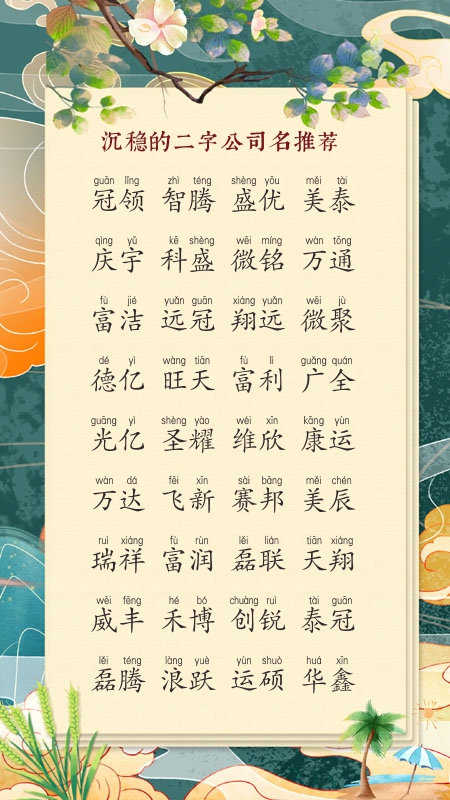 沉稳的二字公司名推荐
guān lǐng zhì téng shèng yōu měi tài
冠领 智腾 盛优 美泰
qìng yǔ kē shèng wēi míng wàn tōng
庆宇 科盛 微铭 万通
fù jié yuǎn guān xiáng yuǎn wēi jù
富洁 远冠 翔远 微聚
dé yì wàng tiān fù lì guǎng quán
德亿 旺天 富利 广全
guāng yì shèng yào wéi xīn kāng yùn
光亿 圣耀 维欣 康运
wàn dá fēi xīn sài bāng měi chén
万达 飞新 赛邦 美辰
ruì xiáng fù rùn lěi lián tiān xiáng
瑞祥 富润 磊联 天翔
wēi fēng hé bó chuàng ruì tài guān
威丰 禾博 创锐 泰冠
lěi téng làng yuè yùn shuò huá xīn
磊腾 浪跃 运硕 华鑫